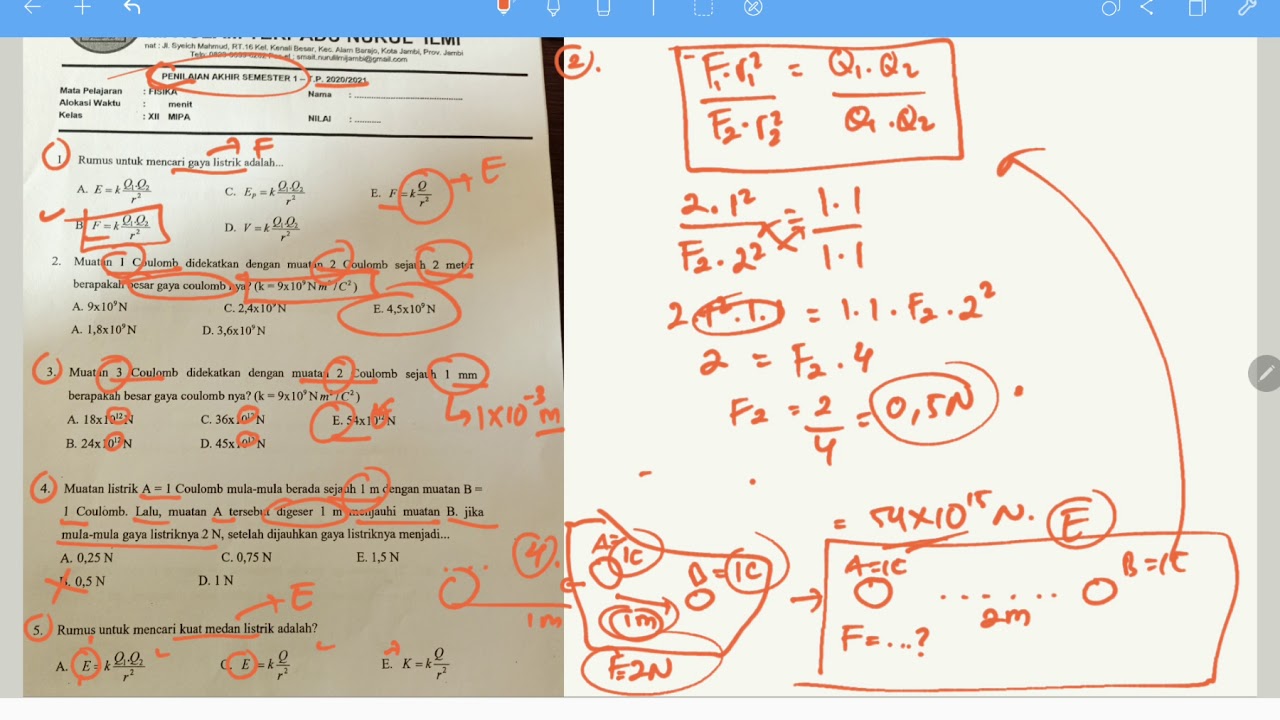 nat : Jl. Syeich Mahmud, RT.16 Kel. Kenali Besar, Kec. Alam Barajo, Kota Jambi, Prov. Jambi
PENILAIAN AKHIR SEMESTER 1 – T.P. 2020/2021
Mata Pelajaran : FISIKA
Nama : ...............
Alokasi Waktu : menit
Kelas : XII MIPA
NILAI : ..........
1 Rumus untuk mencari gaya listrik adalah...
F
A. E = k Q₁.Q₂/r²
C. Eₚ = k Q₁.Q₂/r²
E. F = k Q/r²
E
B. F = k Q₁.Q₂/r²
D. V = k Q₁.Q₂/r²
2. Muatan 1 Coulomb didekatkan dengan muatan 2 Coulomb sejauh 2 meter
berapakah besar gaya coulomb nya? (k = 9x10⁹ N m²/C²)
A. 9x10⁹ N
C. 2,4x10⁹ N
E. 4,5x10⁹ N
A. 1,8x10⁹ N
D. 3,6x10⁹ N
3. Muatan 3 Coulomb didekatkan dengan muatan 2 Coulomb sejauh 1 mm
berapakah besar gaya coulomb nya? (k = 9x10⁹ N m²/C²)
1x10⁻³ m
A. 18x10¹² N
C. 36x10¹² N
E. 54x10 N
15
B. 24x10¹² N
D. 45x10¹² N
4. Muatan listrik A = 1 Coulomb mula-mula berada sejauh 1 m dengan muatan B =
1 Coulomb. Lalu, muatan A tersebut digeser 1 m menjauhi muatan B. jika
mula-mula gaya listriknya 2 N, setelah dijauhkan gaya listriknya menjadi...
A. 0,25 N
C. 0,75 N
E. 1,5 N
0,5 N
D. 1 N
5. Rumus untuk mencari kuat medan listrik adalah?
E
A. E = k Q₁.Q₂/r²
C. E = k Q/r²
E. K = k Q/r²
2.
F₁.r₁²/F₂.r₂² = Q₁.Q₂/Q₁.Q₂
2.1²/F₂.2² = 1.1/1.1
2.1².1.1 = 1.1.F₂.2²
2 = F₂.4
F₂ = 2/4 = 0,5N
= 54x10¹⁵ N. E
4.
1m
A=1C
B=1C
1m
F=2N
A=1C
B=1C
2m
F=...?